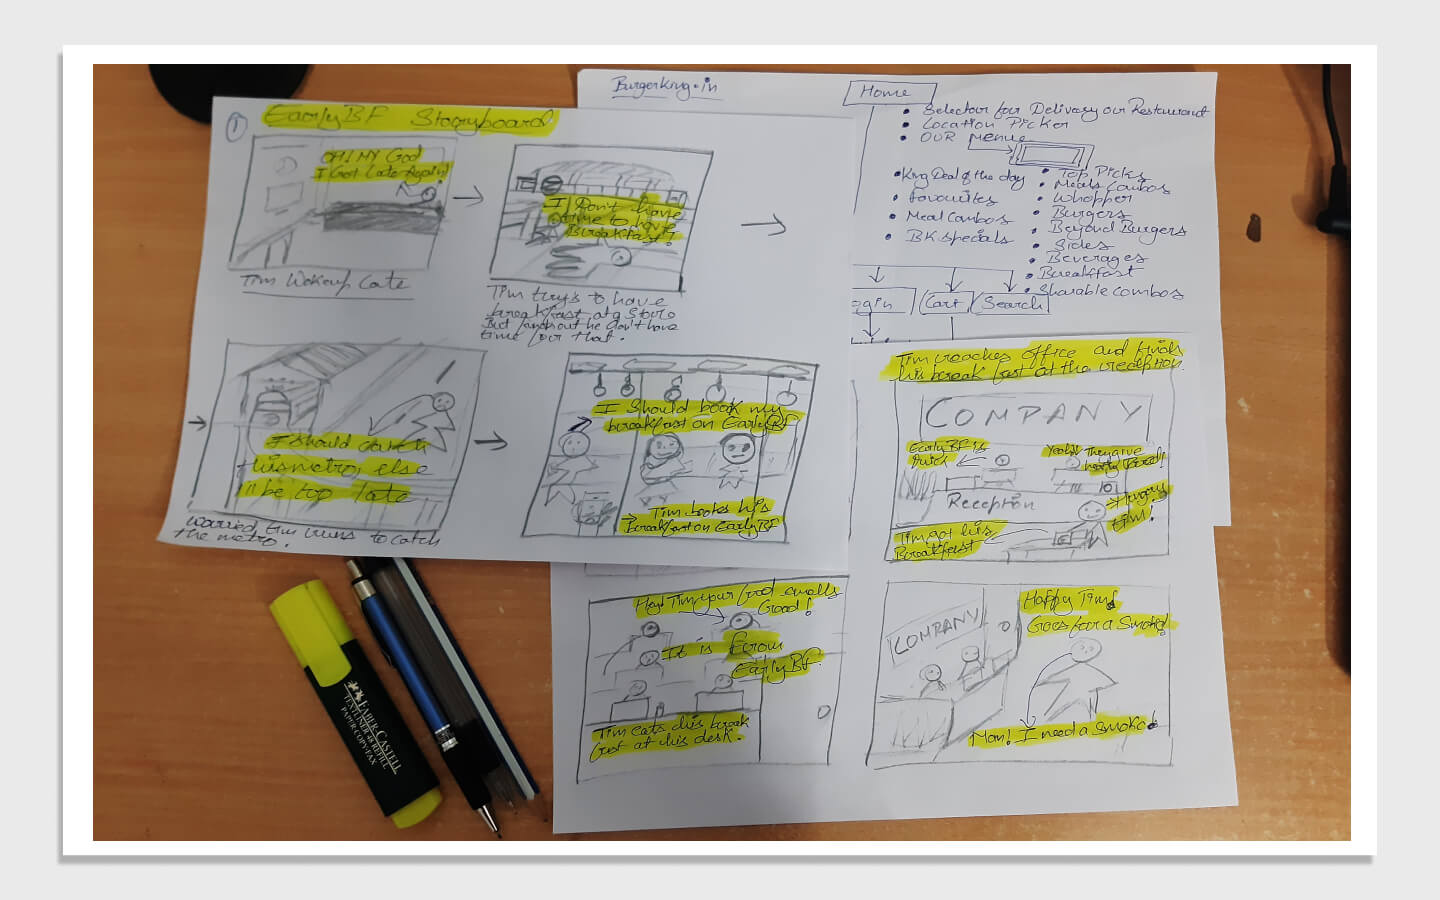 EarlyBF Storyboard
1
OH! MY God
I Got Late Again!
Tim Wokeup Late
I Don't have
time to have
Breakfast!
Tim trys to have
breakfast at a Store
But finds out he don't have
time for that.
I should catch
this metro, else
I'll be too late
Worried, tim runs to catch
the metro.
I Should book my
breakfast on EarlyBF
Tim books his
Breakfast on EarlyBF
BurgerKing.in
Home
Selector for Delivery or Restaurant
Location Picker
OUR Menue
King Deal of the day
Favourites
Meal Combos
BK specials
Top Picks
Meals Combos
Whopper
Burgers
Beyond Burgers
Sides
Beverages
Breakfast
Sharable Combos
gin
Cart
Search
Tim reaches office and finds
his break fast at the reception
COMPANY
EarlyBF is
Quick
Reception
Hungry
tim!
Tim got his
Breakfast
Hey! Tim your food smells
Good!
It is from
EarlyBF
Tim eats his break
fast at his desk.
COMPANY
Happy Tim!
Goes for a Smoke!
Man! I need a Smoke!
FABER-CASTELL
TEXTLINER 48 REFILL
PAPER·COPY·FAX